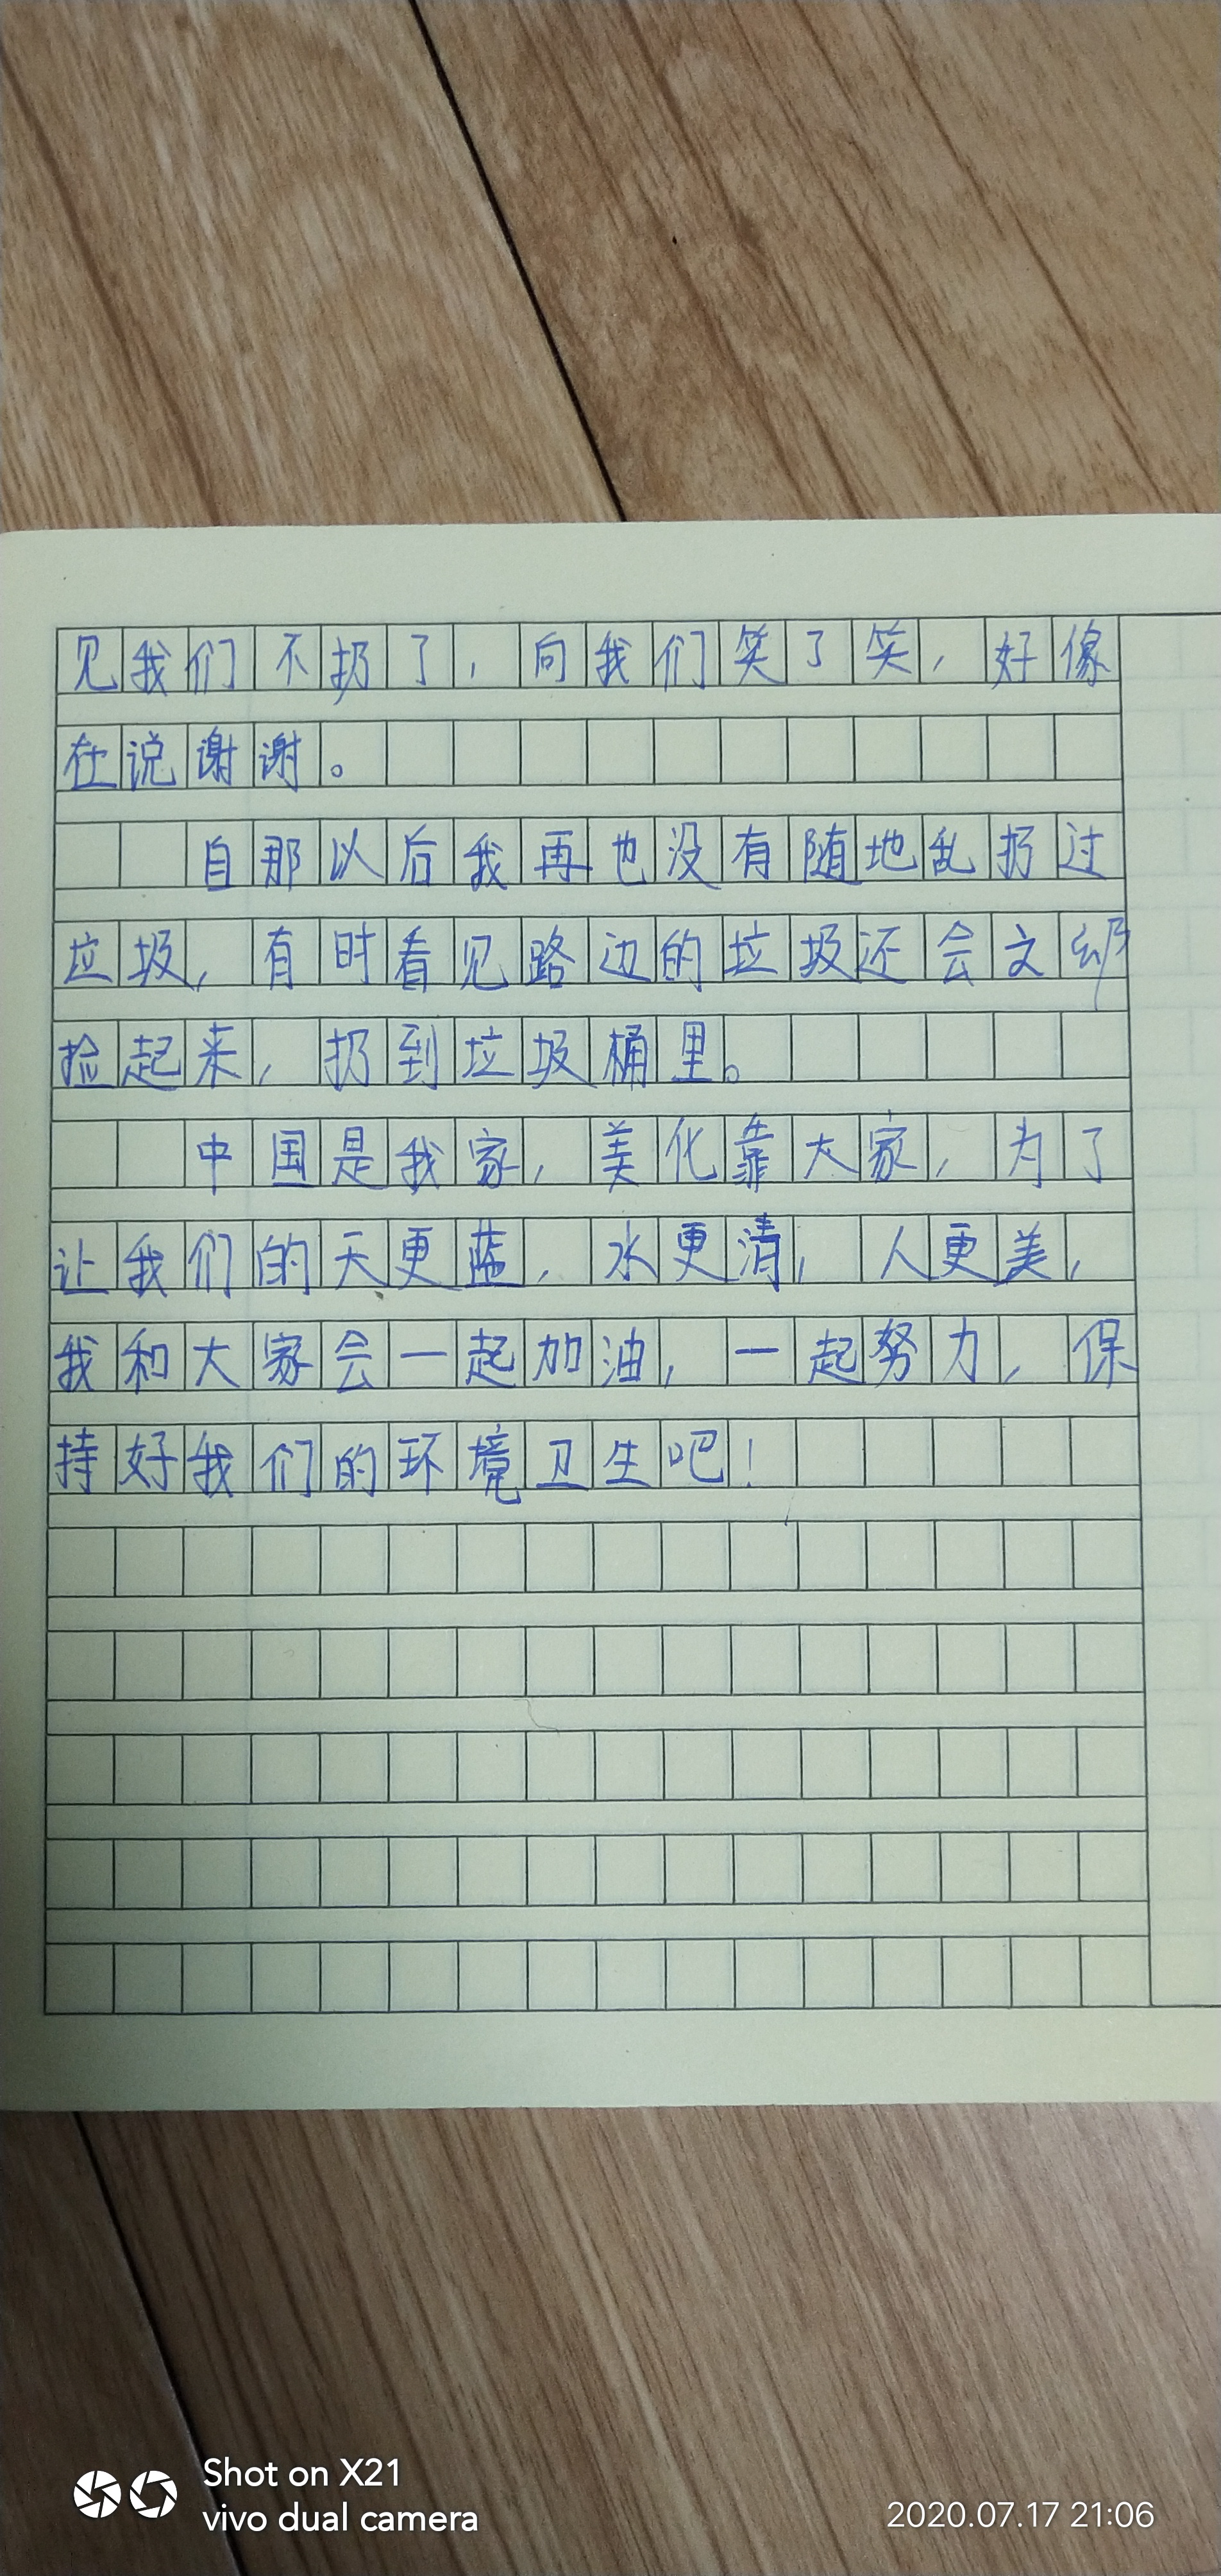 见我们不扔了，向我们笑了笑，好像
在说谢谢。
自那以后我再也没有随地乱扔过
垃圾，有时看见路边的垃圾还会
捡起来，扔到垃圾桶里。
中国是我家，美化靠大家，为了
让我们的天更蓝，水更清，人更美，
我和大家会一起加油，一起努力，保
持好我们的环境卫生吧！
Shot on X21
vivo dual camera
2020.07.17 21:06